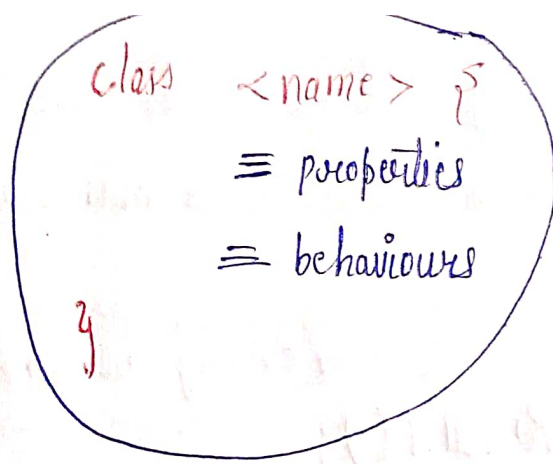 class <name> {
≡ properties
≡ behaviours
}